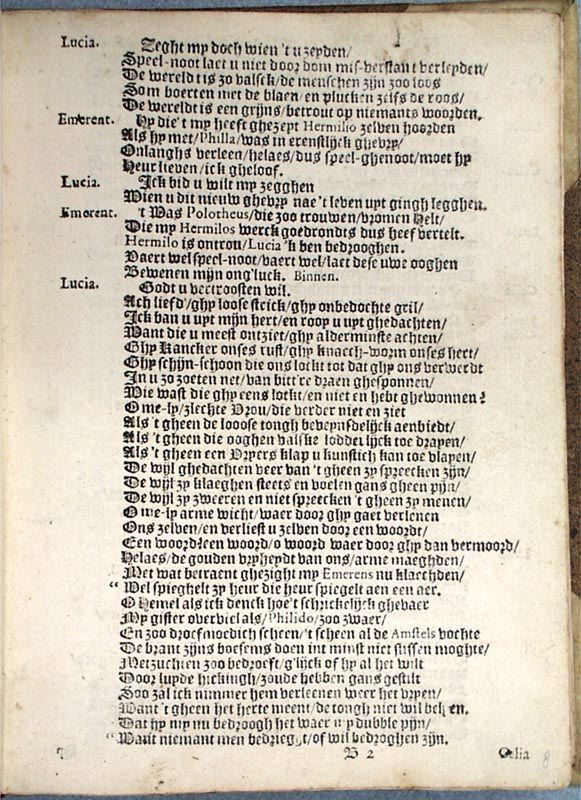 Lucia. Zeght my doch wien 't u zeyden/
Speel-noot laet u niet door dom mis-verstant verleyden/
De werelt is zo valsck/de menschen zijn zoo loos
Som boerten met de blaen/en plucken zelfs de roos/
De wereldt is een grijns/betrout op niemants woorden.
Emerent. Hy die't my heeft ghezeyt Hermilio zelven hoorden
Als hy met/Philla/was in eernstlijck ghevry/
Onlanghs verleen/helaes/dus speel-ghenoot/moet hy
Heur lieven/ick gheloof.
Lucia. Ick bid u wilt my zegghen
Wien u dit nieuw ghevry nae't leven uyt gingh legghen.
Emerent. 't Was Polotheus/die zoo trouwen/vromen Helt/
Die my Hermilos werck goedrondts dus heef vertelt.
Hermilo is ontrou/Lucia 'k ben bedrooghen.
Vaert wel speel-noot/vaert wel/laet dese uwe ooghen
Bewenen mijn ong'luck. Binnen.
Lucia. Godt u vertroosten wil.
Ach liefd'/ghy loose strick/ghy onbedochte gril/
Ick ban u uyt mijn hert/en roop u uyt ghedachten/
Want die u meest ontziet/ghy alderminste achten/
Ghy Kancker onses rust/ghy knaech-worm onses hert/
Ghy schijn-schoon die ons lockt tot dat ghy ons verwerdt
In u zo zoeten net/van bitt're draen ghesponnen/
Wie wast die ghy eens lockt/en niet en hebt ghewonnen?
O me-ly/zlechte Vrou/die verder niet en ziet
Als 't gheen de looose tongh beveynsdelijck aenbiedt/
Als 't gheen die ooghen valske lodderlijck toe drayen/
Als 't gheen een Vryers klap u kunstich kan toe vlayen/
De wijl ghedachten veer van 't gheen zy spreecken zijn/
De wijl zy klaeghen steets en voelen gans gheen pijn/
De wijl zy zweeren en niet spreecken 't gheen zy menen/
O me-ly arme wicht/waer door ghy gaet verlenen
Ons zelven/en verliest u zelven door een woordt/
Een woordt?een woord/o woord waer door ghy dan vermoord/
Helaes/de gouden vryheydt van ons/arme maeghden/
Met wat betraent ghezight my Emerens nu klaechden/
“ Wel spieghelt zy heur die heur spiegelt aen een aer.
O Hemel als ick denck hoe't schrickelijck ghevaer
My gister overviel als/Philido/zoo zwaer/
En zoo droefmoedich scheen/'t scheen al de Amstels vochte
De brant zijns boesems doen int minst niet stissen moghte/
Met zuchten zoo bedroeft/g'lijck of hy al het wilt
Door luyde hickingh/zoude hebben gans gestilt
Soo zal ick nimmer hem verleenen weer het vryen/
Want 't gheen het herte meent/de tongh niet wil
Dat hy my nu bedroogh het waer my dubble pijn/
“ Want niemant men bedrieght/of wil bedroghen zijn.
B 2 Celia
8